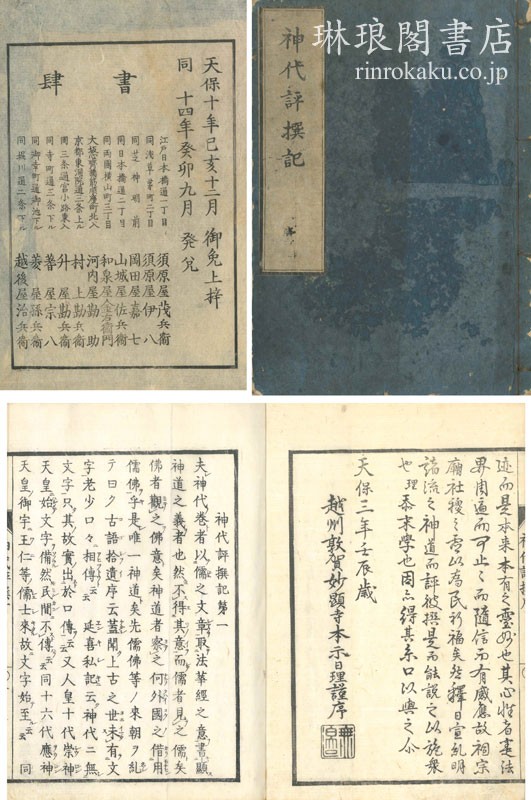 琳琅閣書店
rinrokaku.co.jp
神代評撰記
天保十年己亥十二月 御免上梓
同 十四年癸卯九月 發兌
書肆
江戸日本橋通一丁目 須原屋茂兵衛
同浅草茅町二丁目 須原屋伊八
同芝神明前 岡田屋嘉七
同日本橋通二丁目 山城屋佐兵衛
同両國横山町三丁目 和泉屋金右衛門
大坂心齋橋筋 河内屋勘助
京都東洞院通三条上ル 村上勘兵衛
同三条通富小路東入 升屋勘兵衛
同寺町通三条下ル 善屋宗八
同御幸町通御池下ル 菱屋孫兵衛
同堀川通二条下ル 越後屋治兵衛
迹而是本来本有之霊妙也其心性者妻法
界周遍而可止之而隨信而有感應故祖宗
廟社稷之靈以為民祈福矣釋日宣乱明
諸流之神道而評彼撰是而能説之以施衆
也理泰末學也因得其糸口以與之介
天保三年壬辰歳
越州敦賀妙顯寺本示日理謹序
神代評撰記第一
夫神代卷者以儒之文章取法華經之意書顯
神道之義者也然不得其意而儒者見之儒矣
佛者觀之佛意矣神道者察之何外國之借用
儒佛乎是唯一神道矣先儒佛等ノ來朝ヲ乱
テ曰ク古語拾遺序云蓋聞上古之世未有文
字老少口々相傳云 延喜私記云神代ニ無
文字只其故實出於口傳云又人皇十代崇神
天皇始文字備然民間不傳云同十六代應神
天皇御宇王仁等儒士來故文字始玉云 同